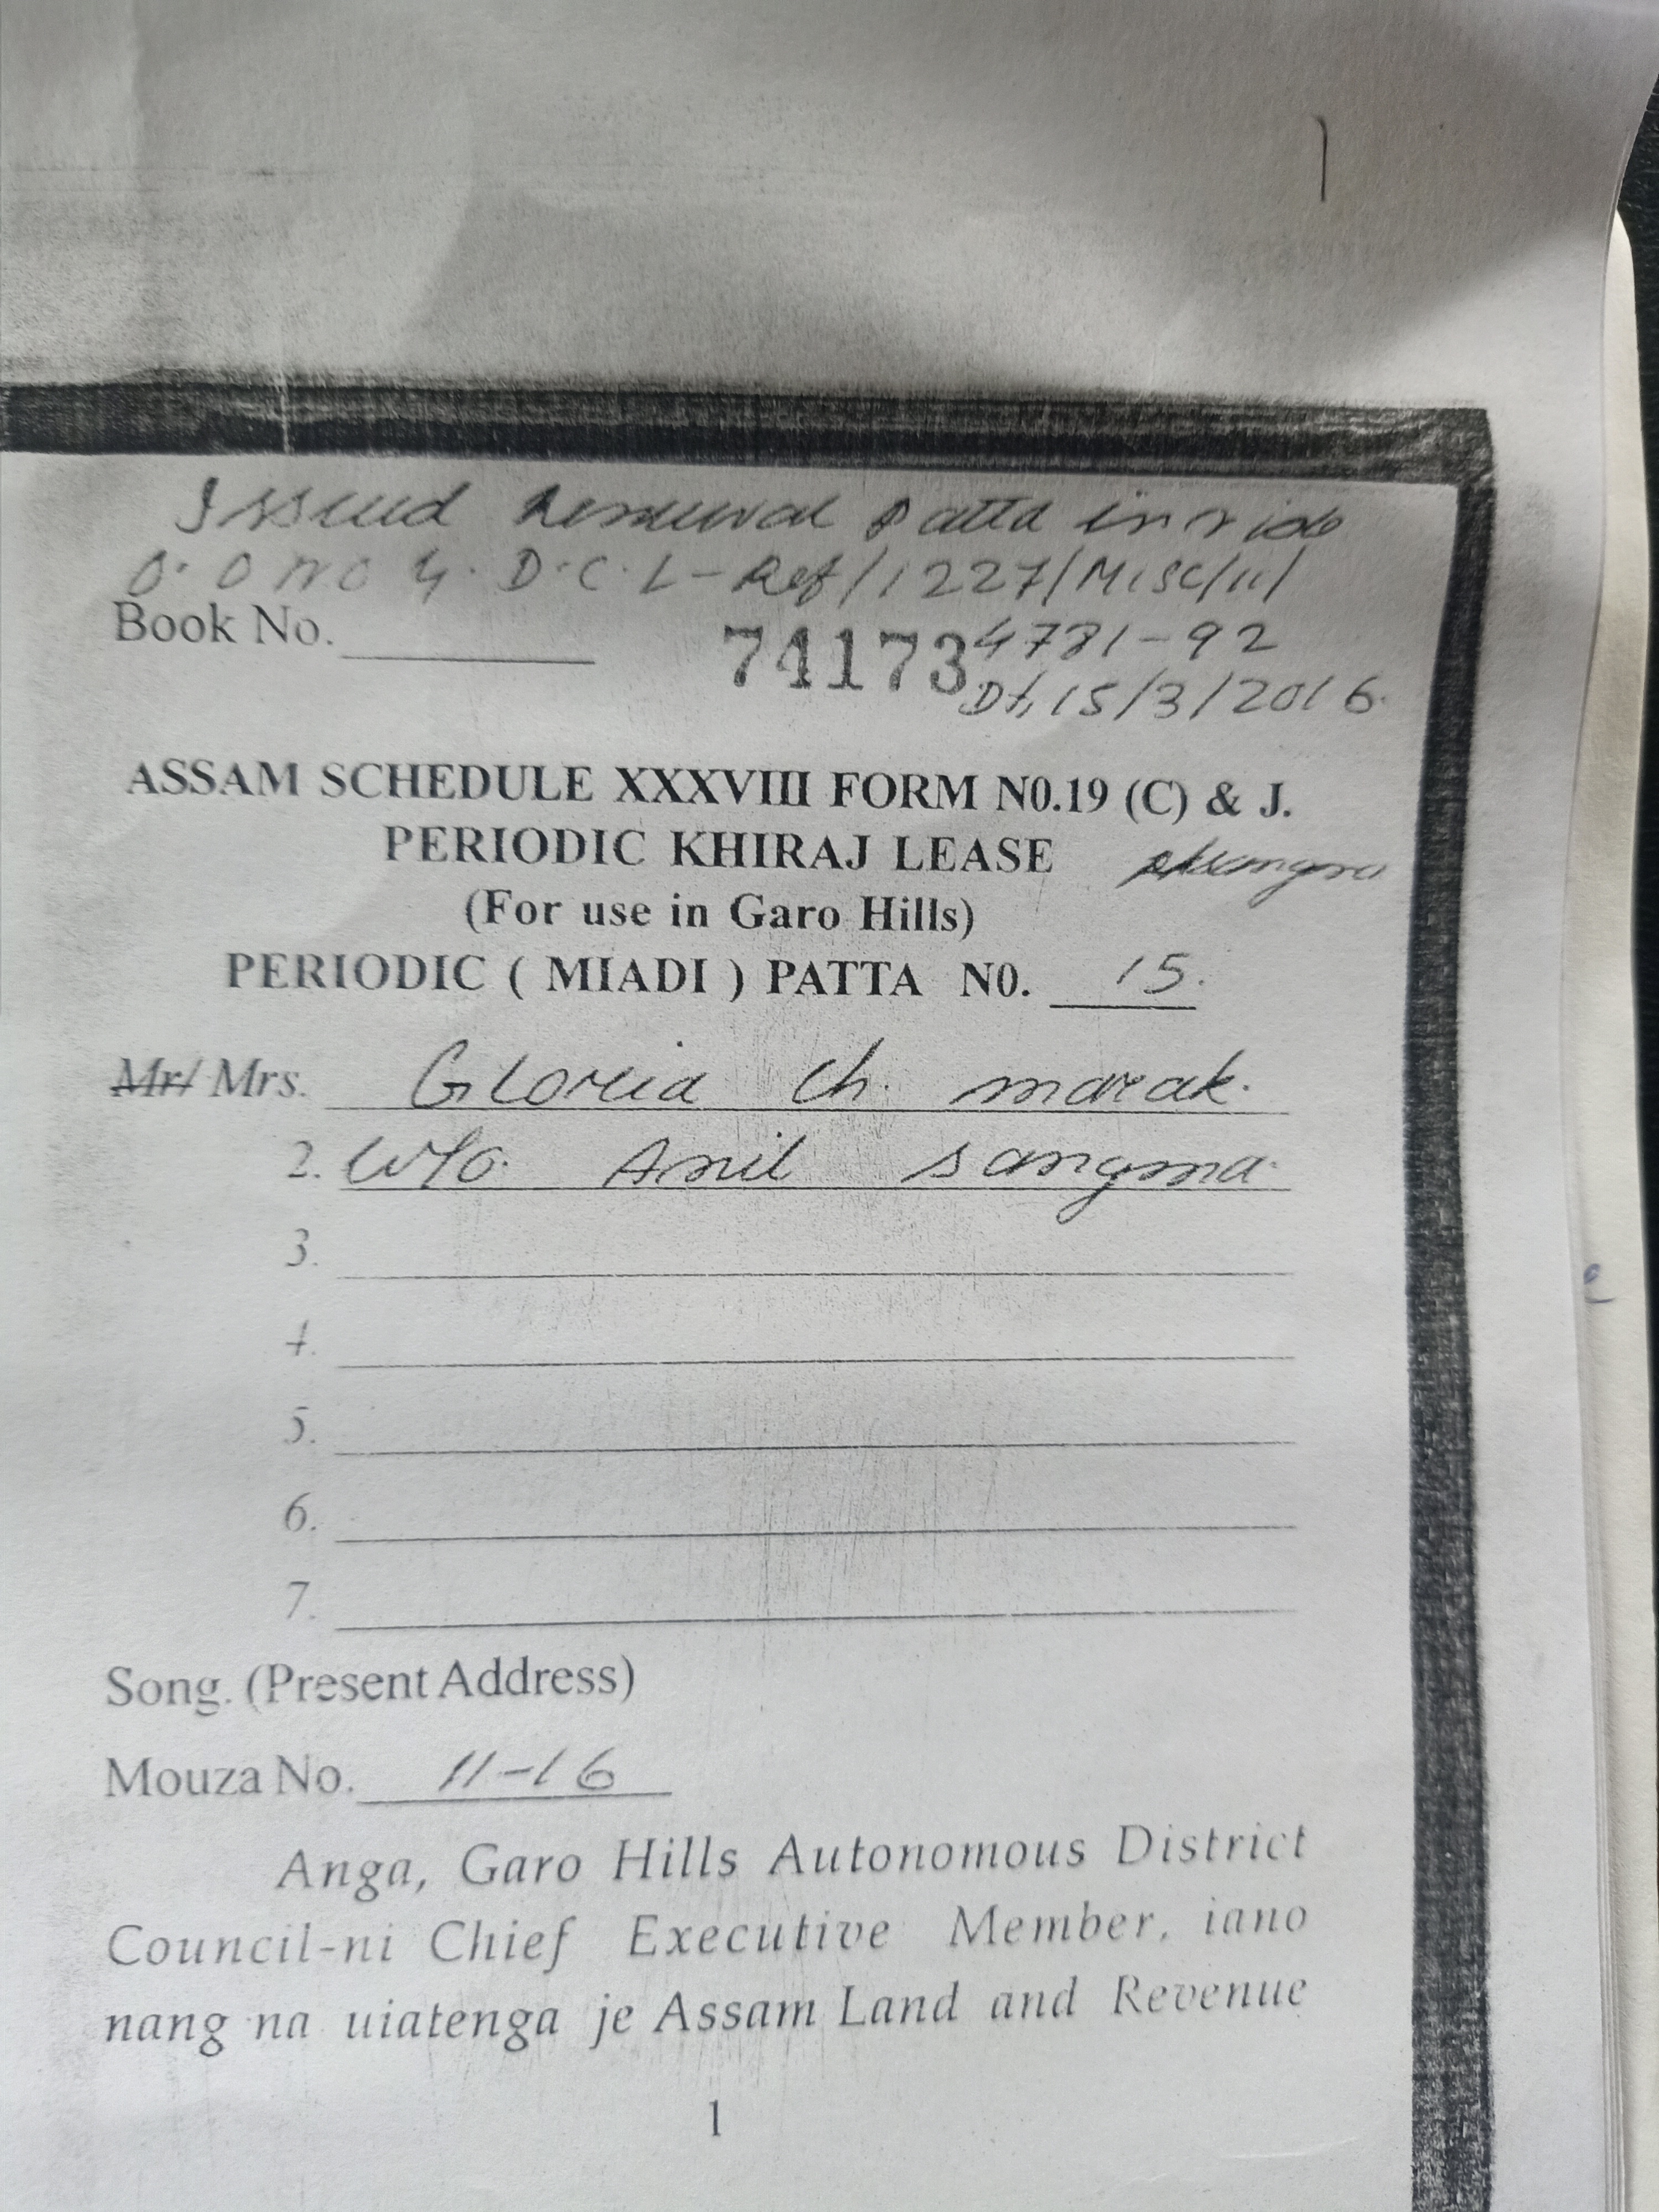 Issued Renewal Patta in vide
O.O No G.D.C.L-Ref/1227/Misc/11/
Book No. 74173 4781-92
Dt, 15/3/2016.
ASSAM SCHEDULE XXXVIII FORM N0.19 (C) & J.
PERIODIC KHIRAJ LEASE
(For use in Garo Hills)
PERIODIC ( MIADI ) PATTA N0. 15.
Mr/ Mrs. Gloria Ch. marak.
2. W/o. Anil sangma.
3.
4.
5.
6.
7.
Song. (Present Address)
Mouza No. 11-16
Anga, Garo Hills Autonomous District
Council-ni Chief Executive Member, iano
nang na uiatenga je Assam Land and Revenue
1